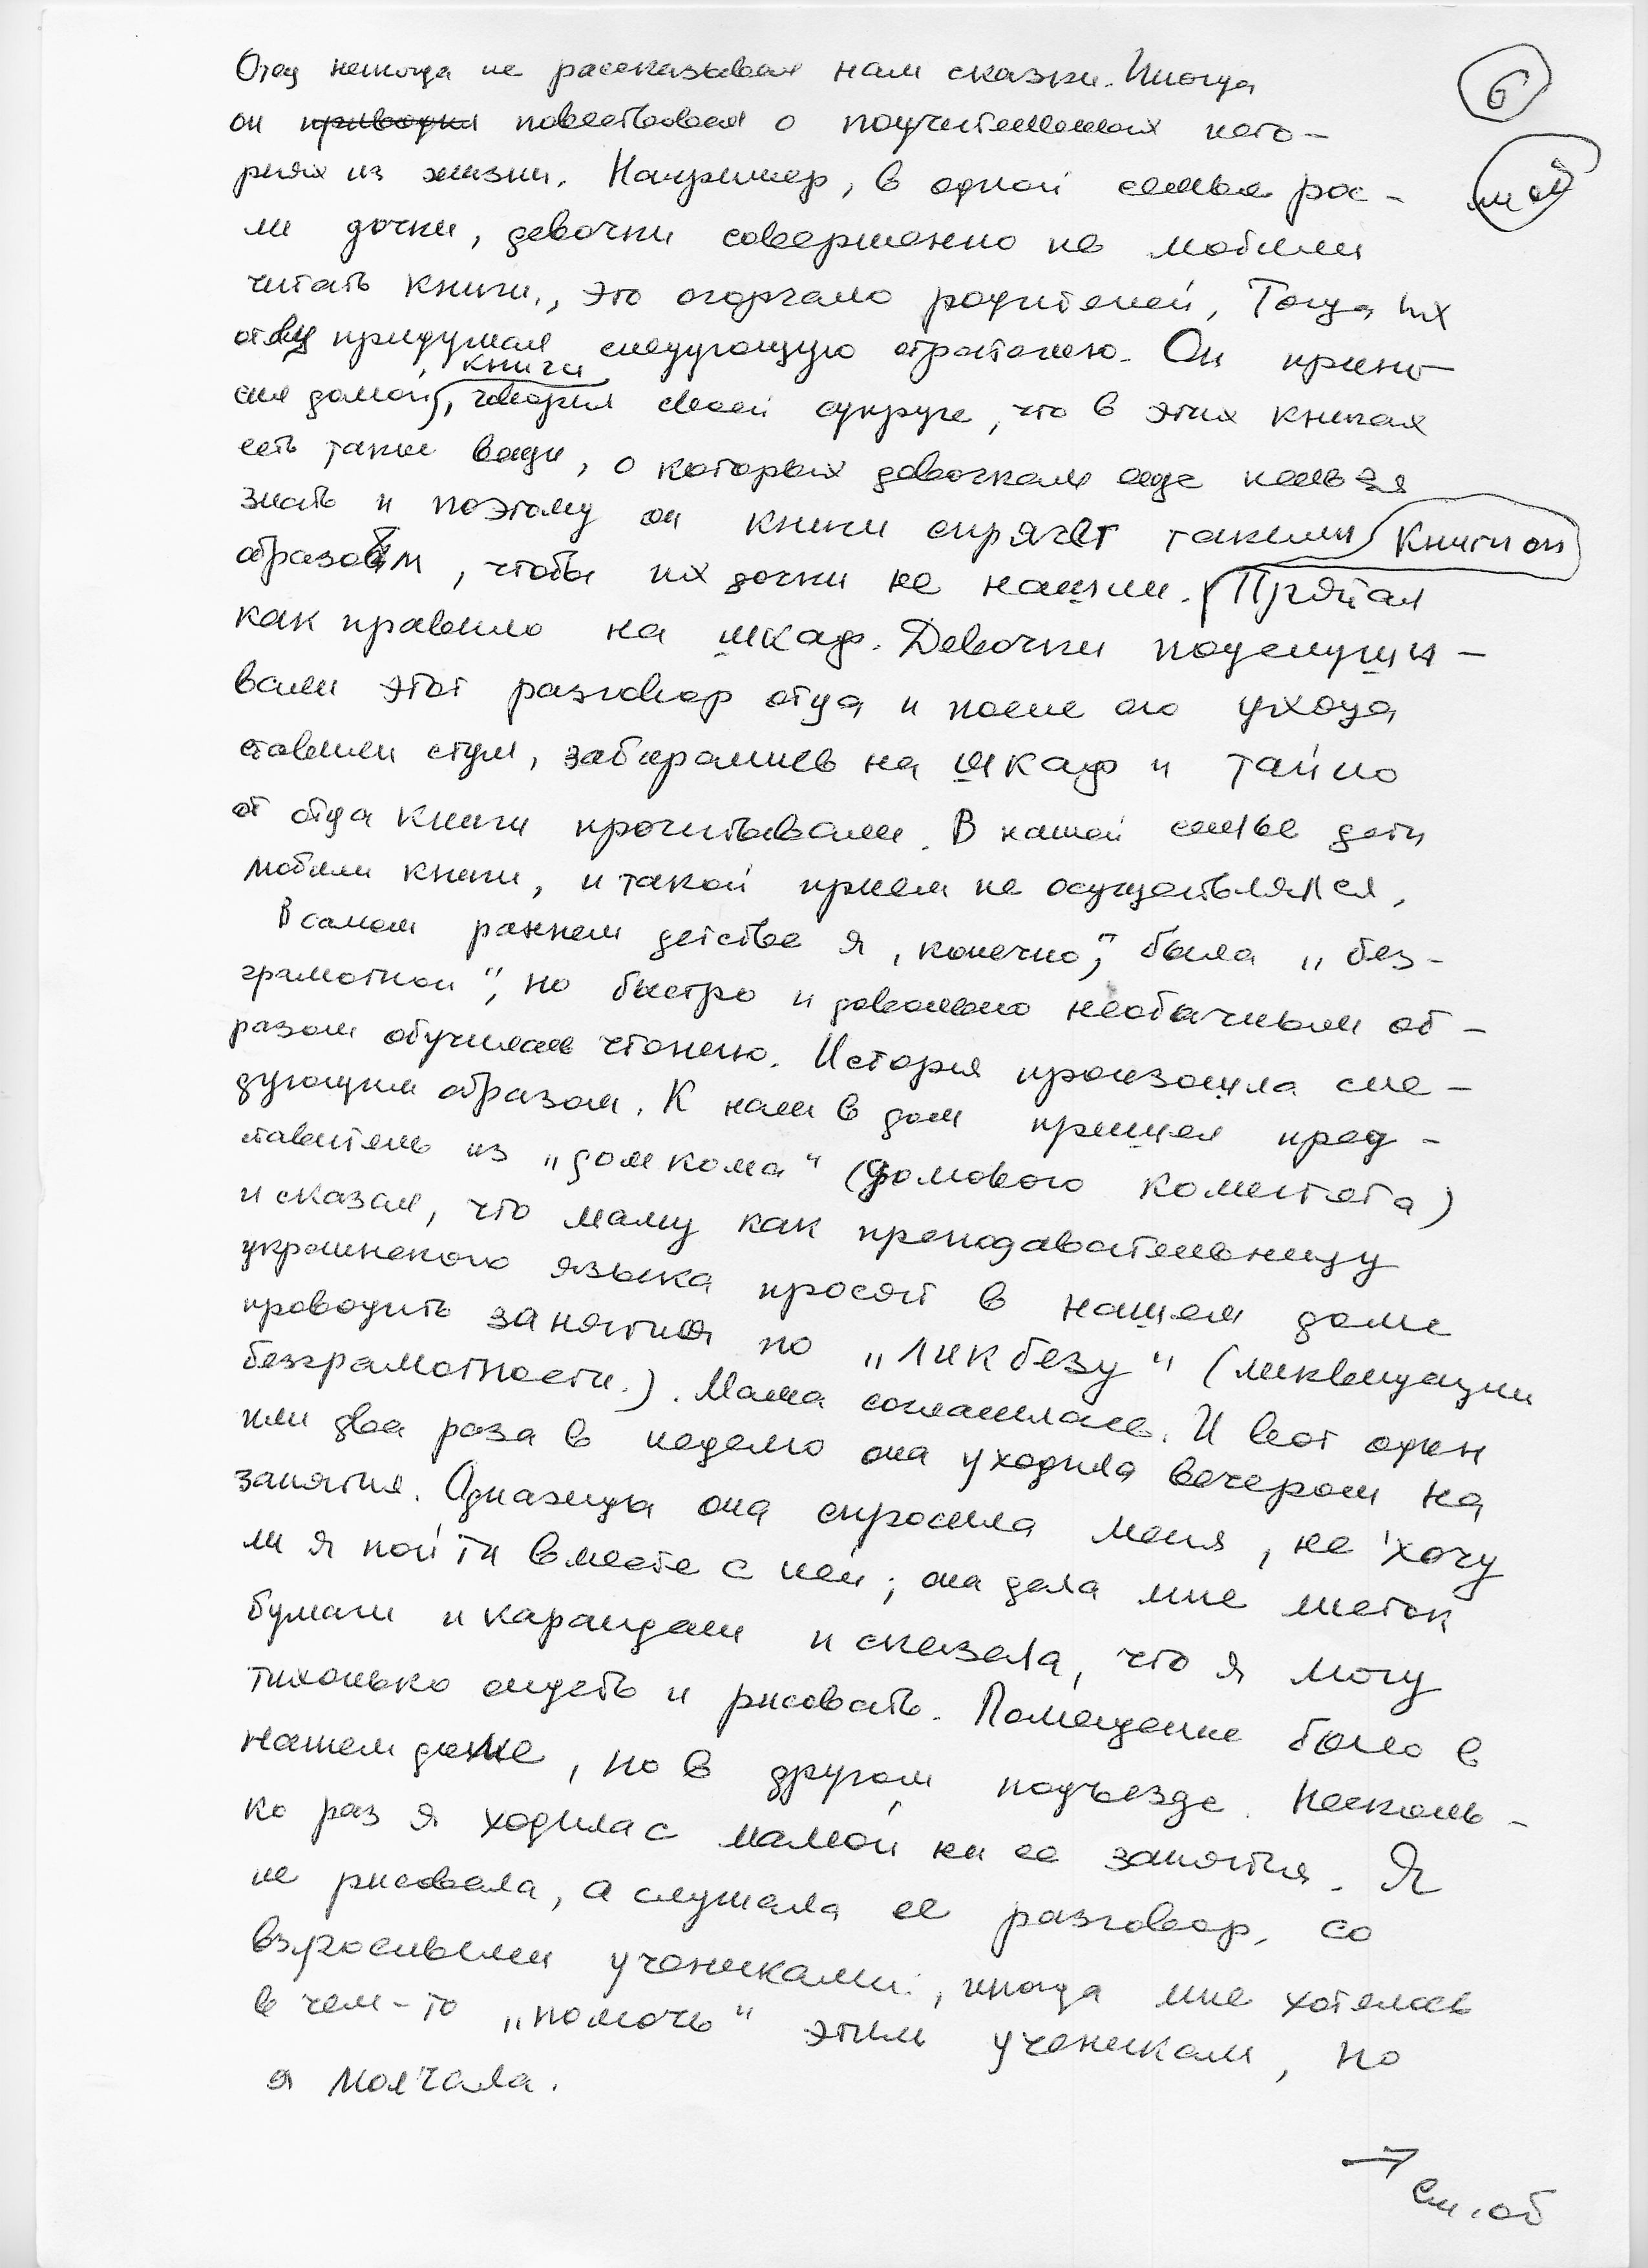 Отец никогда не рассказывал нам сказки. Иногда
6
он приводил повествовал о поучительных исто-
риях из жизни. Например, в одной семье рос-
ли дочки, девочки совершенно не любили
читать книги, это огорчало родителей, Тогда их
отец придумал следующую стратегию. Он прино-
книги
сил домой, говорил своей супруге, что в этих книгах
есть такие вещи, о которых девочкам еще нельзя
знать и поэтому он книги спрячет таким Книги он
образом, чтобы их дочки не нашли. Прятал
как правило на шкаф. Девочки подслуши-
вали этот разговор отца и после его ухода
ставили стул, забирались на шкаф и тайно
от отца книги прочитывали. В нашей семье дети
любили книги, и такой прием не осуществлялся.
В самом раннем детстве я, конечно, была „без-
грамотной", но быстро и довольно необычным об-
разом обучилась чтению. История произошла сле-
дующим образом. К нам в дом пришел пред-
ставитель из „домкома" (домового комитета)
и сказал, что маму как преподавательницу
украинского языка просят в нашем доме
проводить занятия по „ликбезу" (ликвидации
безграмотности.). Мама согласилась. И вот один
или два раза в неделю она уходила вечером на
занятия. Однажды она спросила меня, не хочу
ли я пойти вместе с ней; она дала мне листок
бумаги и карандаш и сказала, что я могу
тихонько сидеть и рисовать. Помещение было в
нашем доме, но в другом подъезде. Несколь-
ко раз я ходила с мамой на ее занятия. Я
не рисовала, а слушала ее разговор, со
взрослыми учениками, иногда мне хотелось
в чем-то „помочь" этим ученикам, но
я молчала.
→
См. об